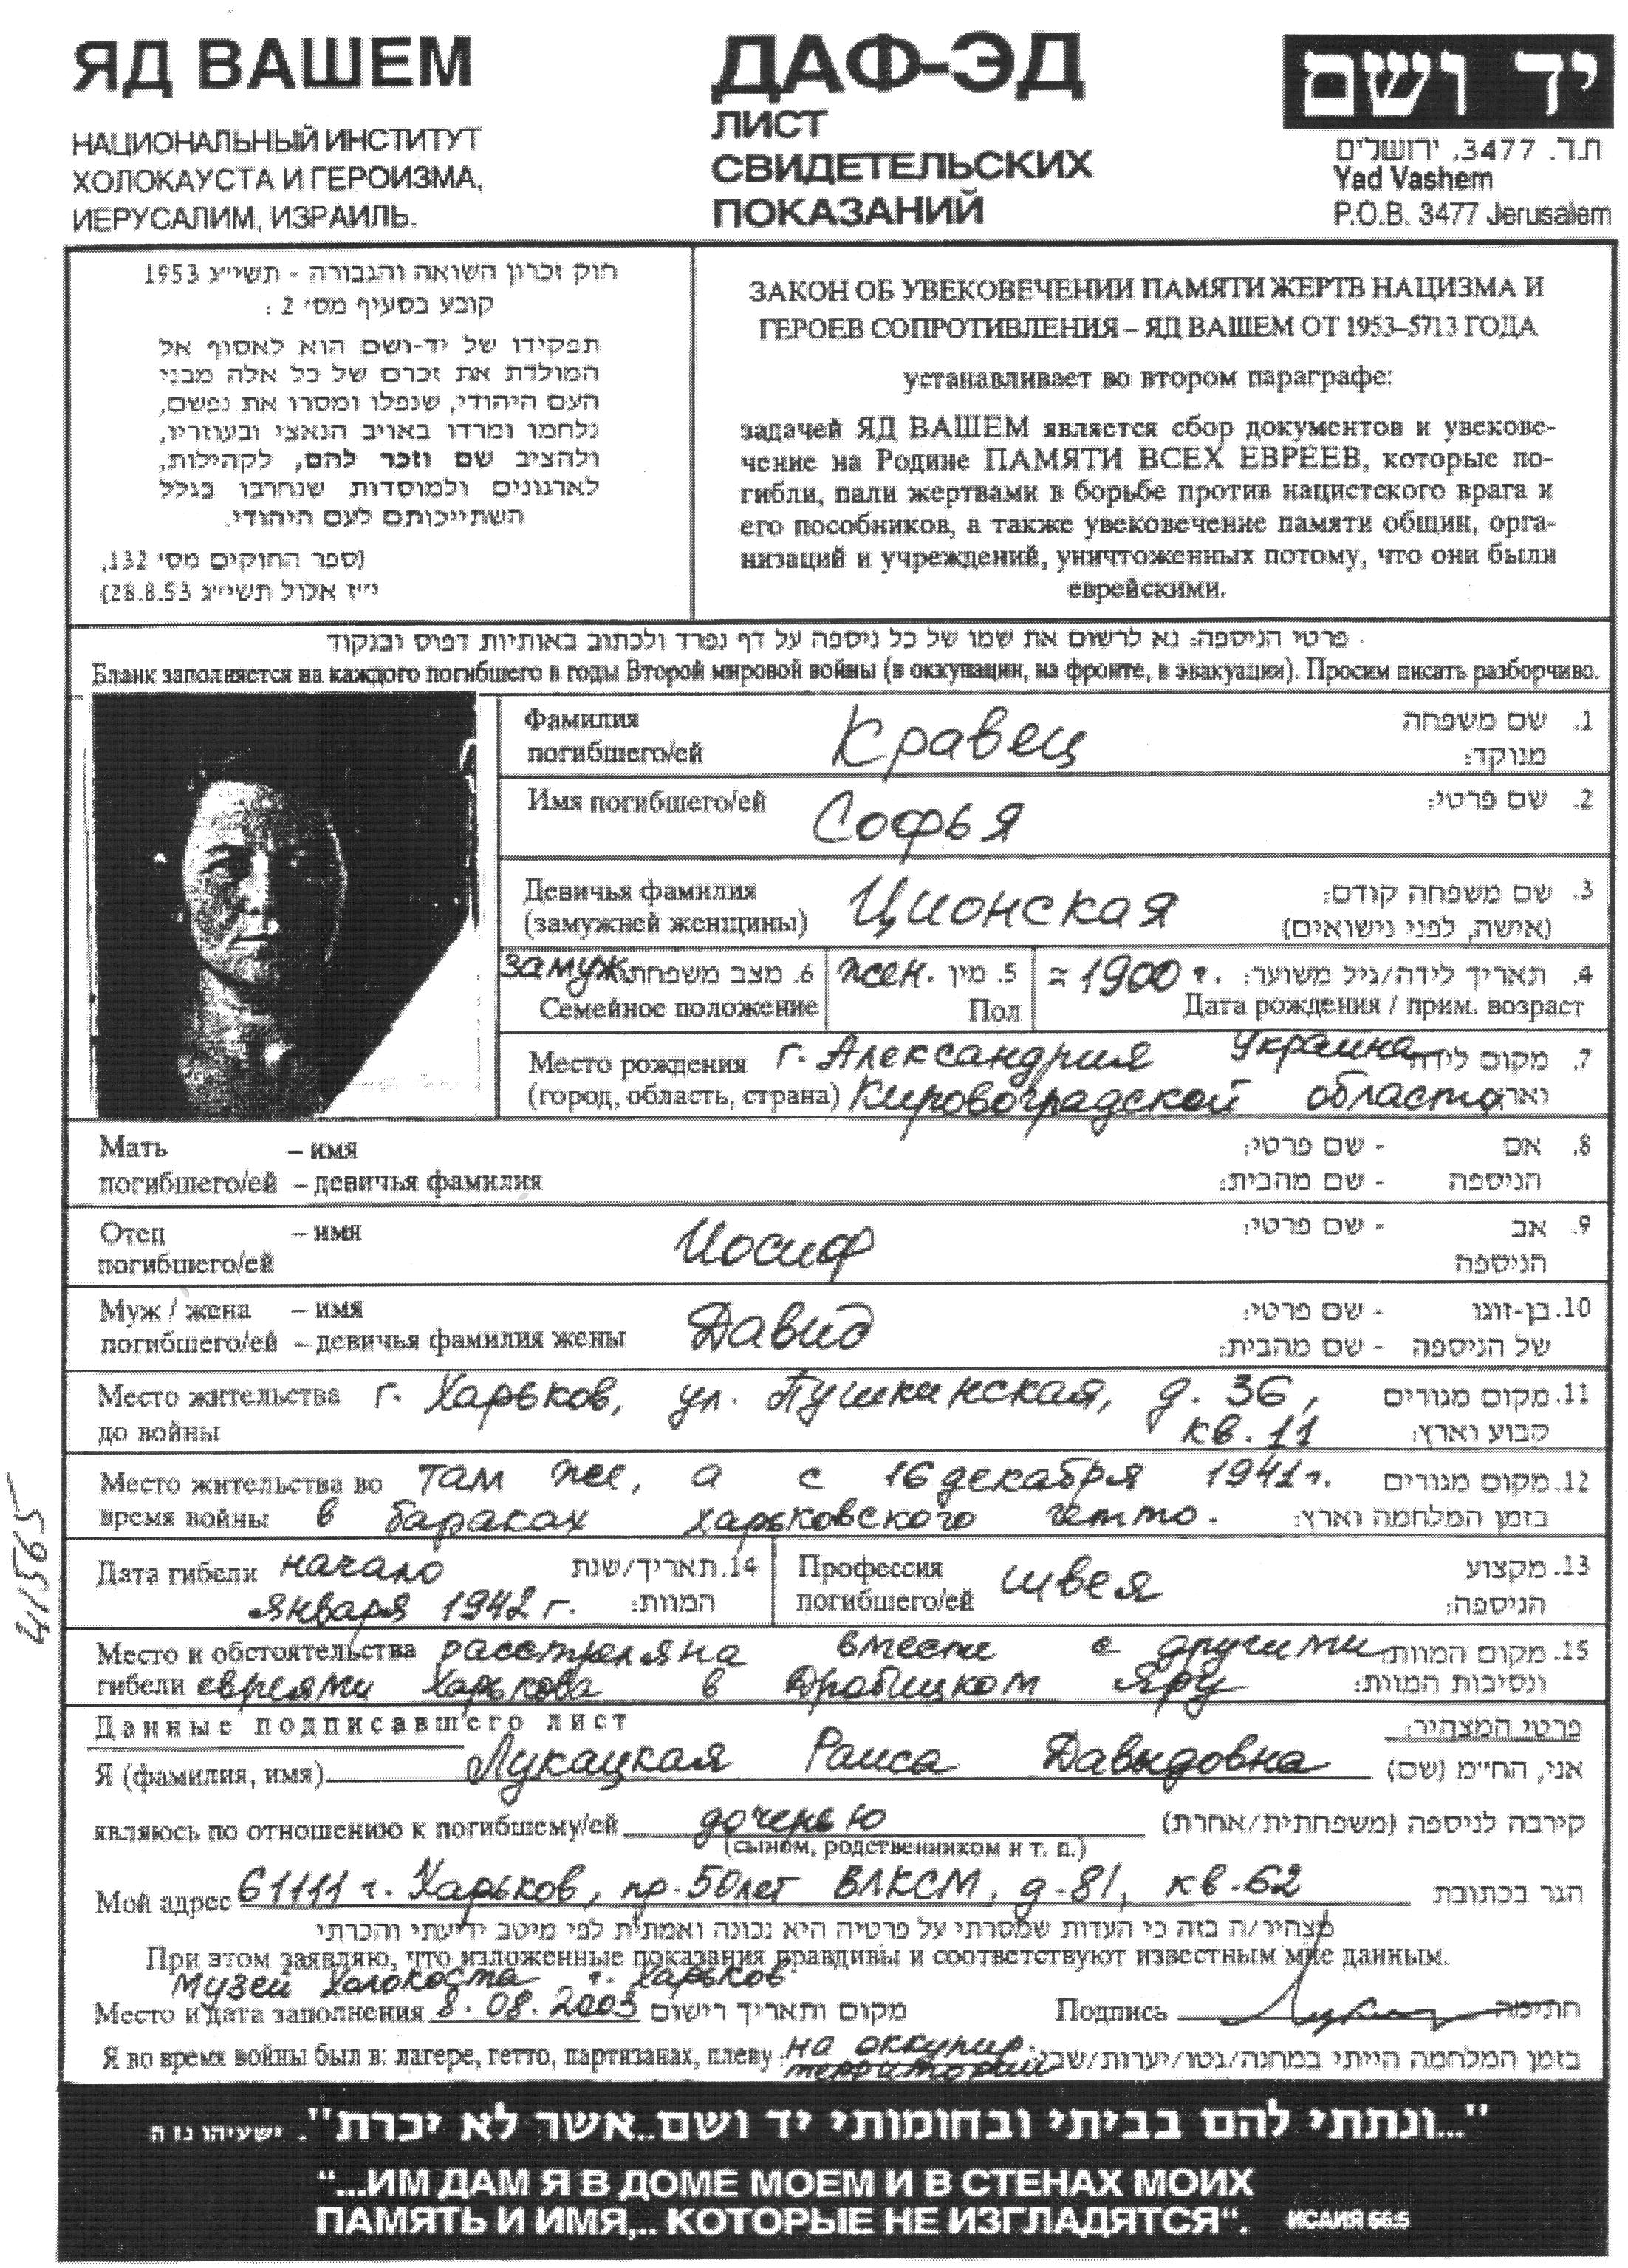 ЯД ВАШЕМ
НАЦИОНАЛЬНЫЙ ИНСТИТУТ
ХОЛОКАУСТА И ГЕРОИЗМА,
ИЕРУСАЛИМ, ИЗРАИЛЬ.
ДАФ-ЭД
ЛИСТ
СВИДЕТЕЛЬСКИХ
ПОКАЗАНИЙ
יד ושם
ת.ד. 3477, ירושלים
Yad Vashem
P.O.B. 3477 Jerusalem
חוק זכרון השואה והגבורה - תשי״ג 1953
קובע בסעיף מס׳ 2 :
תפקידו של יד-ושם הוא לאסוף אל
המולדת את זכרם של כל אלה מבני
העם היהודי, שנפלו ומסרו את נפשם,
נלחמו ומרדו באויב הנאצי ובעוזריו,
ולהציב שם וזכר להם, לקהילות,
לארגונים ולמוסדות שנחרבו בגלל
השתייכותם לעם היהודי.
(ספר החוקים מס׳ 132,
י״ז אלול תשי״ג 28.8.53)
ЗАКОН ОБ УВЕКОВЕЧЕНИИ ПАМЯТИ ЖЕРТВ НАЦИЗМА И
ГЕРОЕВ СОПРОТИВЛЕНИЯ – ЯД ВАШЕМ ОТ 1953–5713 ГОДА
устанавливает во втором параграфе:
задачей ЯД ВАШЕМ является сбор документов и увекове-
чение на Родине ПАМЯТИ ВСЕХ ЕВРЕЕВ, которые по-
гибли, пали жертвами в борьбе против нацистского врага и
его пособников, а также увековечение памяти общин, орга-
низаций и учреждений, уничтоженных потому, что они были
еврейскими.
פרטי הניספה: נא לרשום את שמו של כל ניספה על דף נפרד ולכתוב באותיות דפוס ובנקוד
Бланк заполняется на каждого погибшего в годы Второй мировой войны (в оккупации, на фронте, в эвакуации). Просим писать разборчиво.
Фамилия Кравец 1. שם משפחה
погибшего/ей מנוקד:
Имя погибшего/ей Софья 2. שם פרטי:
Девичья фамилия Ционская 3. שם משפחה קודם:
(замужней женщины) (אישה, לפני נישואים)
замуж. 6. מצב משפחתי жен. 5. מין ≈ 1900 г. 4. תאריך לידה/גיל משוער:
Семейное положение Пол Дата рождения / прим. возраст
Место рождения г. Александрия Украина 7. מקום לידה
(город, область, страна) Кировоградской области
Мать – имя 8. אם - שם פרטי:
погибшего/ей – девичья фамилия הניספה - שם מהבית:
Отец – имя Иосиф 9. אב - שם פרטי:
погибшего/ей הניספה
Муж / жена – имя Давид 10. בן-זוגו - שם פרטי:
погибшего/ей – девичья фамилия жены של הניספה - שם מהבית:
Место жительства г. Харьков, ул. Пушкинская, д. 36, 11. מקום מגורים
до войны кв. 11 קבוע וארץ:
Место жительства во там же, а с 16 декабря 1941 г. 12. מקום מגורים
время войны в бараках харьковского гетто. בזמן המלחמה וארץ:
Дата гибели начало 14. תאריך/שנת
января 1942 г. המוות:
Профессия швея 13. מקצוע
погибшего/ей הניספה:
Место и обстоятельства расстреляна вместе с другими 15. מקום המוות
гибели евреями Харькова в Дробицком Яру ונסיבות המוות:
Данные подписавшего лист פרטי המצהיר:
Я (фамилия, имя) Лукацкая Раиса Давыдовна אני, החי״מ (שם)
являюсь по отношению к погибшему/ей дочерью קירבה לניספה (משפחתית/אחרת)
(сыном, родственником и т. п.)
Мой адрес 61111 г. Харьков, пр. 50 лет ВЛКСМ, д. 81, кв. 62 הגר בכתובת
מצהיר/ה בזה כי העדות שמסרתי על פרטיה היא נכונה ואמתית לפי מיטב ידיעתי והכרתי
При этом заявляю, что изложенные показания правдивы и соответствуют известным мне данным.
Музей Холокоста г. Харьков
Место и дата заполнения 8.08.2003 מקום ותאריך רישום Подпись חתימה
Я во время войны был в: лагере, гетто, партизанах, плену на оккупир. בזמן המלחמה הייתי במחנה/גטו/יערות/שבי
территории
41565
"...ונתתי להם בביתי ובחומותי יד ושם..אשר לא יכרת". ישעיהו נו ה
"...ИМ ДАМ Я В ДОМЕ МОЕМ И В СТЕНАХ МОИХ
ПАМЯТЬ И ИМЯ,.. КОТОРЫЕ НЕ ИЗГЛАДЯТСЯ". ИСАИЯ 56:5